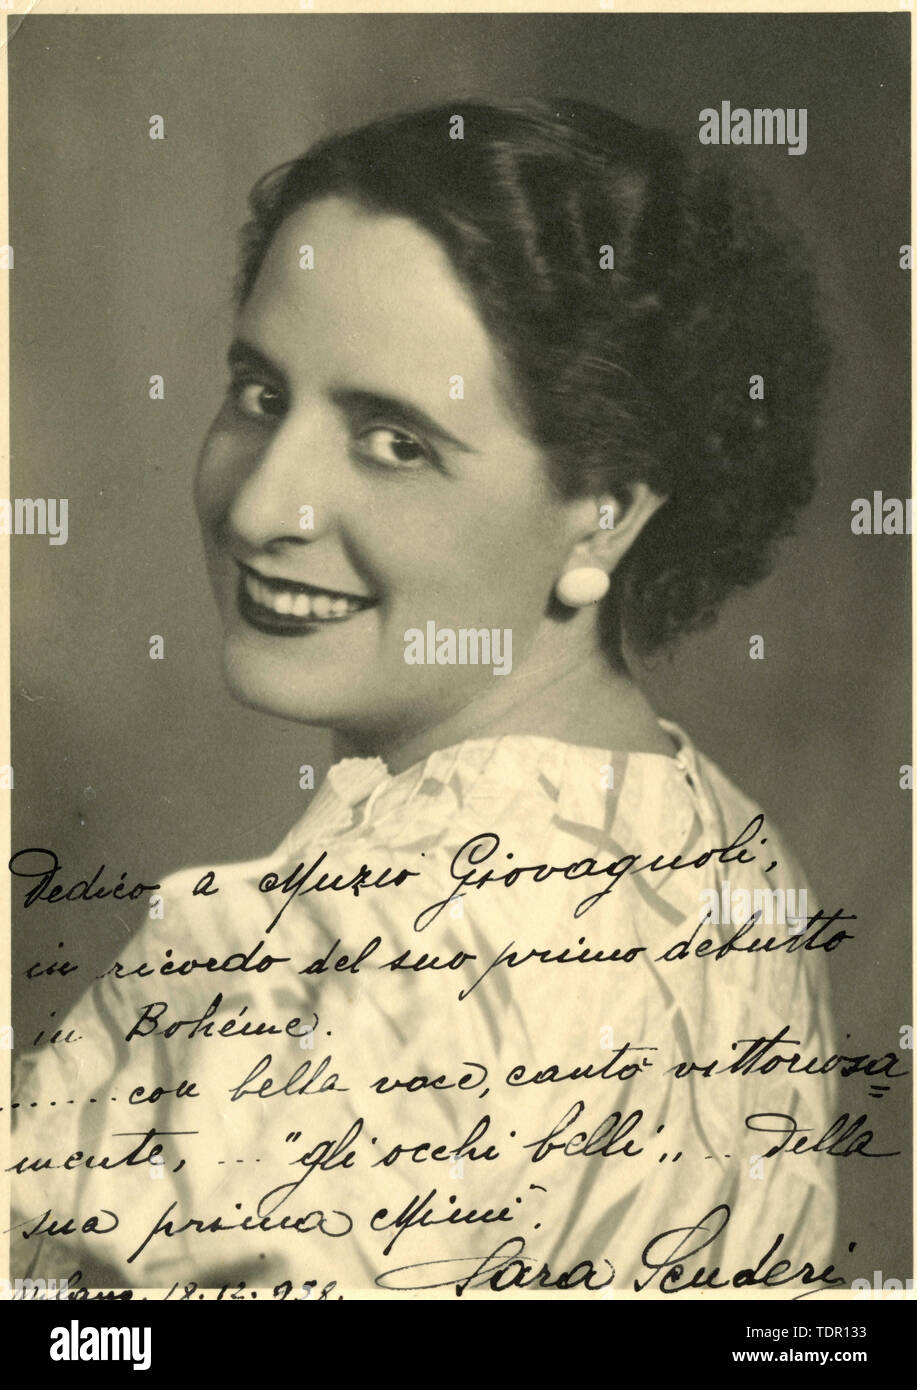 Dedico a Muzio Giovagnoli,
in ricordo del suo primo debutto
in Bohéme.
......con bella voce, cantò vittoriosa=
mente, ... "gli occhi belli,, ... della
sua prima Mimì".
Sara Scuderi
Milano. 18.12.938.
alamy
Image ID: TDR133
www.alamy.com